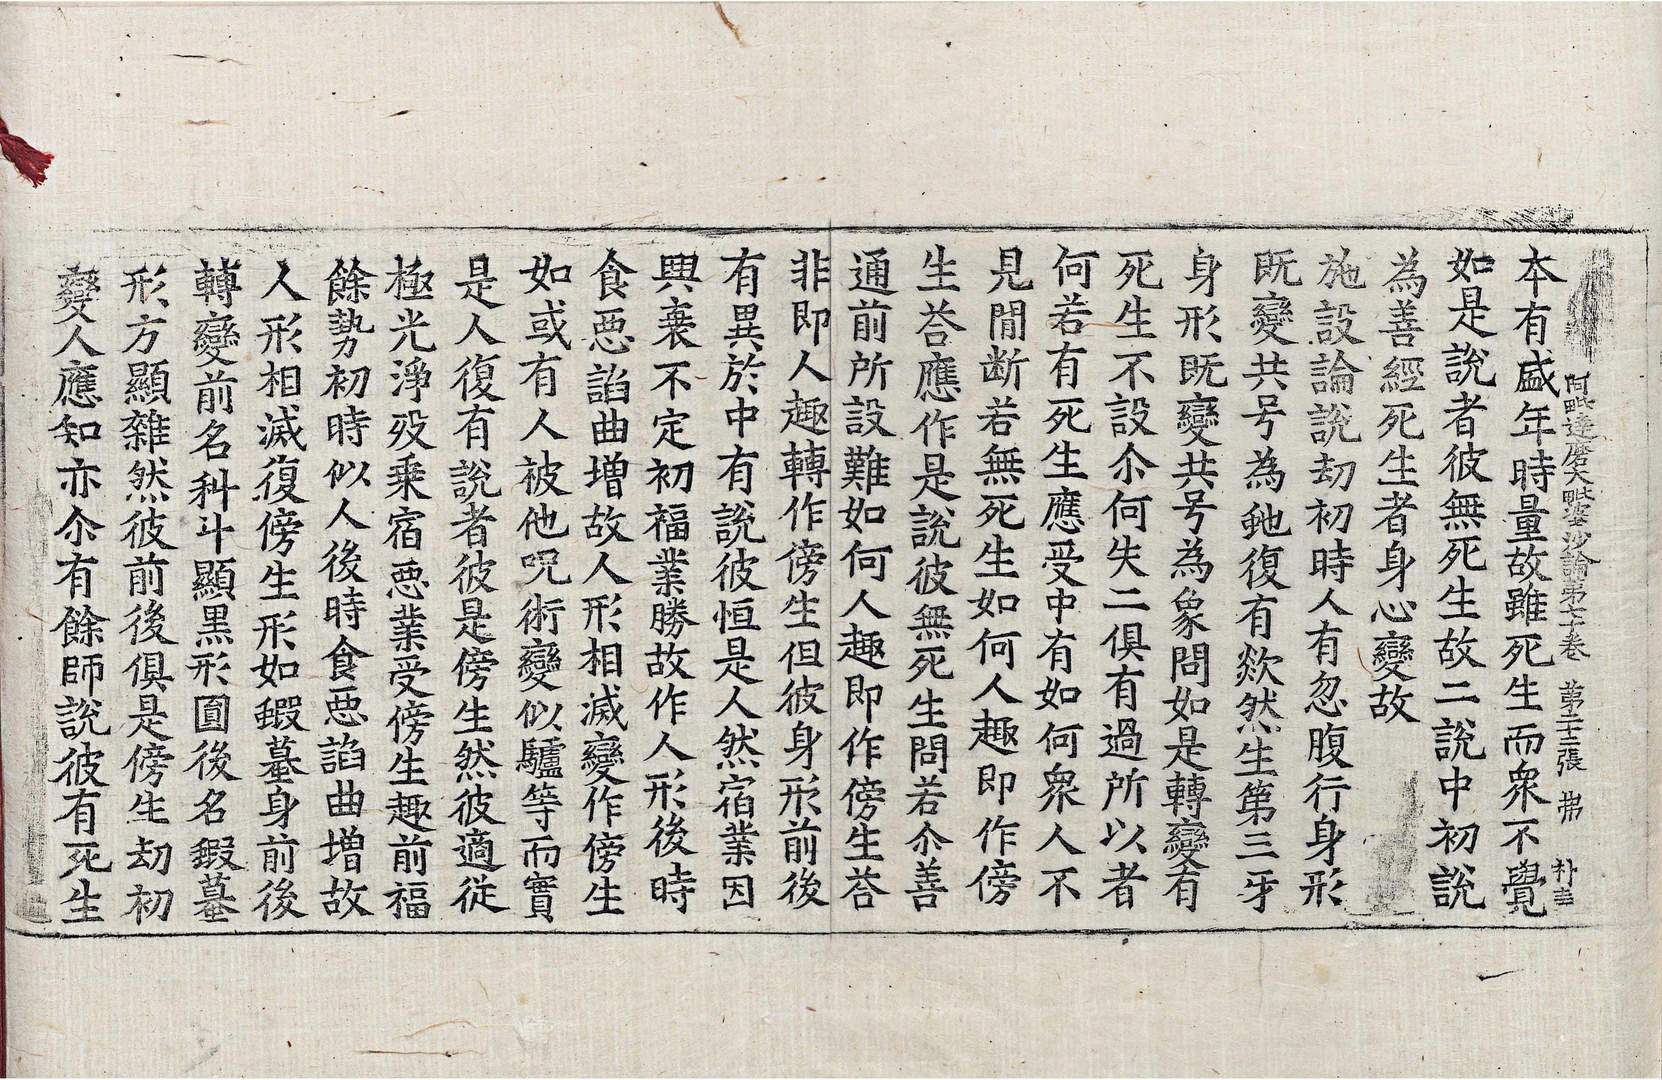 阿毗達磨大毗婆沙論第七十卷 第二十三張 弗
本有盛年時量故雖死生而衆不覺
如是說者彼無死生故二說中初說
為善經死生者身心變故
施設論說劫初時人有忽腹行身形
既變共号為虵復有欻然生第三牙
身形既變共号為象問如是轉變有
死生不設尒何失二俱有過所以者
何若有死生應受中有如何衆人不
見閒断若無死生如何人趣即作傍
生荅應作是說彼無死生問若尒善
通前所設難如何人趣即作傍生荅
非即人趣轉作傍生但彼身形前後
有異於中有說彼恒是人然宿業因
興衰不定初福業勝故作人形後時
食惡諂曲增故人形相滅變作傍生
如或有人被他呪術變似驢等而實
是人復有說者彼是傍生然彼適從
極光淨歿乗宿惡業受傍生趣前福
餘勢初時似人後時食惡諂曲增故
人形相滅復傍生形如蝦蟇身前後
轉變前名科斗顯黒形圎後名蝦蟇
形方顯雜然彼前後俱是傍生劫初
變人應知亦尒有餘師說彼有死生